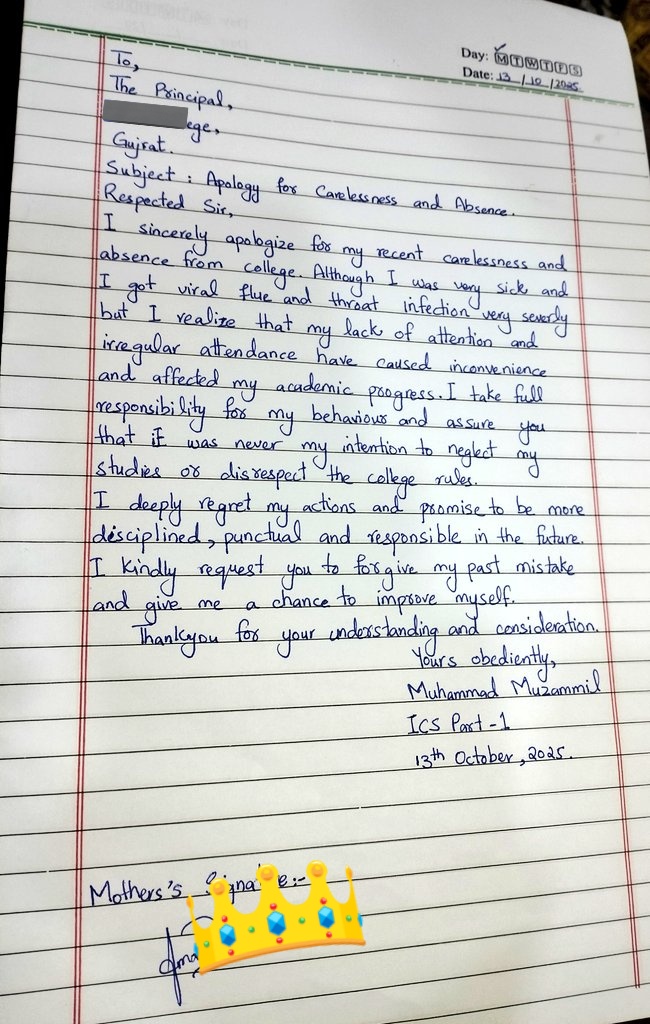 Day: M T W T F S
Date: 13 / 10 / 2025
To,
The Principal,
ege,
Gujrat.
Subject : Apology for Carelessness and Absence.
Respected Sir,
I sincerely apologize for my recent carelessness and
absence from college. Although I was very sick and
I got viral flue and throat infection very severly
but I realize that my lack of attention and
irregular attendance have caused inconvenience
and affected my academic progress. I take full
responsibility for my behaviour and assure you
that it was never my intention to neglect my
studies or disrespect the college rules.
I deeply regret my actions and promise to be more
disciplined, punctual and responsible in the future.
I kindly request you to forgive my past mistake
and give me a chance to improve myself.
Thankyou for your understanding and consideration.
Yours obediently,
Muhammad Muzammil
ICS Part-1
13th October, 2025.
Mothers's :-